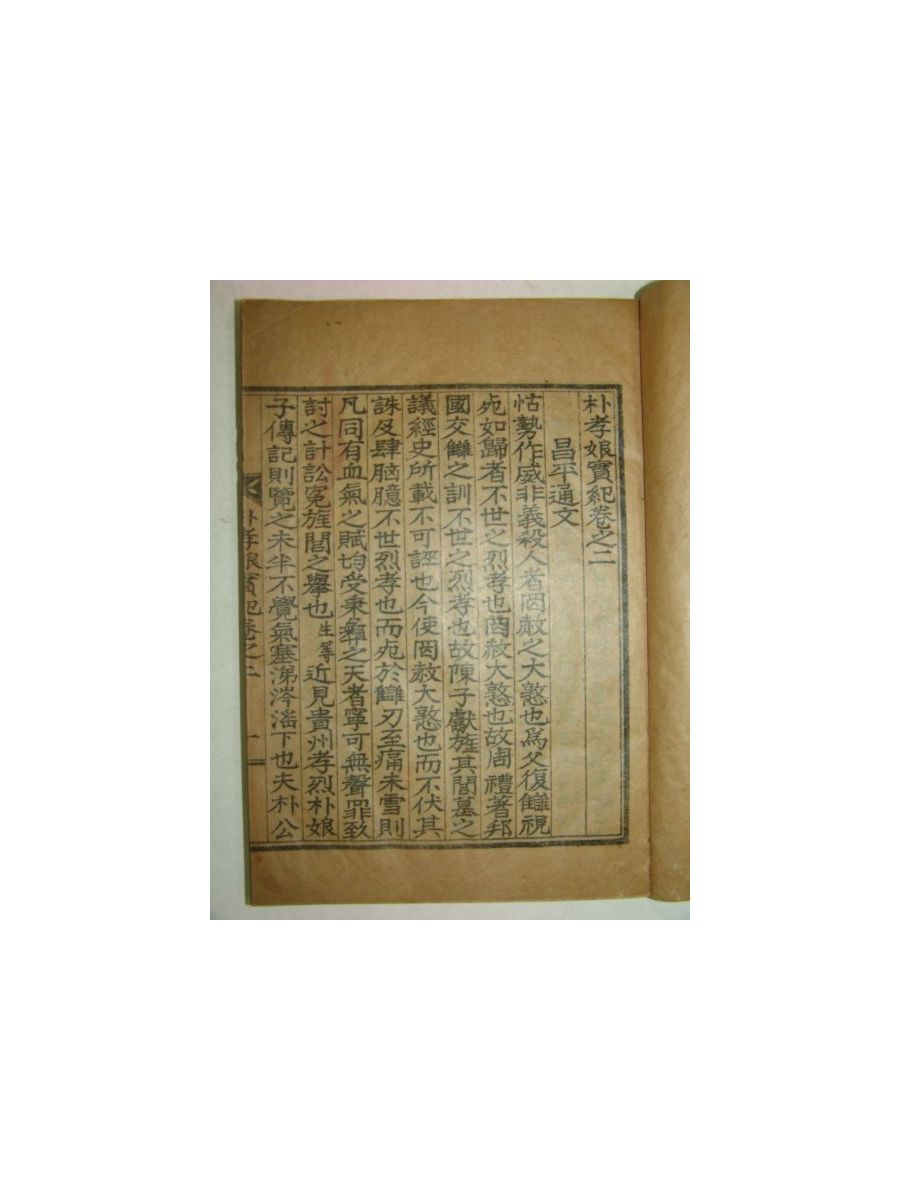 朴孝娘實紀卷之二
昌平通文
怙勢作威非義殺人者罔赦之大憝也爲父復讎視
死如歸者不世之烈孝也罔赦大憝也故周禮著邦
國交讎之訓不世之烈孝也故陳子獻旌其閭墓之
議經史所載不可誣也今使罔赦大憝也而不伏其
誅反肆胸臆不世烈孝也而死於讎刃至痛未雪則
凡同有血氣之賦均受秉彝之天者寧可無聲罪致
討之計訟冤旌閭之擧也生等近見貴州孝烈朴娘
子傳記則覽之未半不覺氣塞涕涔滛下也夫朴公
朴孝娘實紀卷之二 一